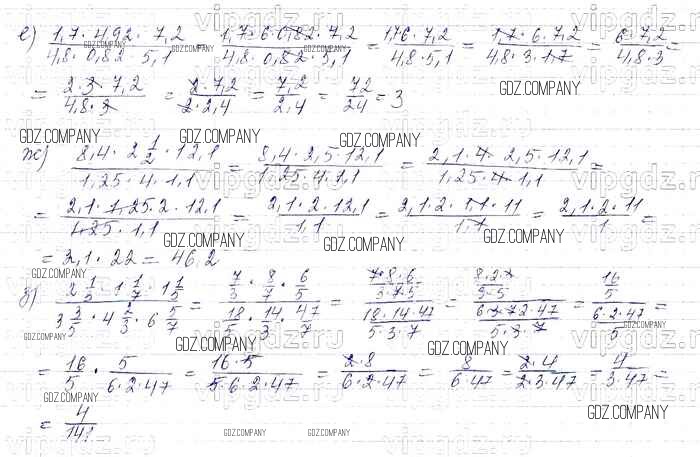 е) (1,7 · 4,92 · 7,2)/(4,8 · 0,82 · 5,1) = (1,7 · 6 · 0,82 · 7,2)/(4,8 · 0,82 · 5,1) = (1,7 · 6 · 7,2)/(4,8 · 5,1) = (1,7 · 6 · 7,2)/(4,8 · 3 · 1,7) = (6 · 7,2)/(4,8 · 3) =
= (2 · 3 · 7,2)/(4,8 · 3) = (2 · 7,2)/(2 · 2,4) = 7,2/2,4 = 72/24 = 3
ж) (8,4 · 2 1/2 · 12,1)/(1,25 · 4 · 1,1) = (8,4 · 2,5 · 12,1)/(1,25 · 4 · 1,1) = (2,1 · 4 · 2,5 · 12,1)/(1,25 · 4 · 1,1) =
= (2,1 · 1,25 · 2 · 12,1)/(1,25 · 1,1) = (2,1 · 2 · 12,1)/1,1 = (2,1 · 2 · 1,1 · 11)/1,1 = (2,1 · 2 · 11)/1 =
= 2,1 · 22 = 46,2
з) (2 1/3 · 1 1/7 · 1 1/5)/(3 3/5 · 4 2/3 · 6 5/7) = (7/3 · 8/7 · 6/5)/(18/5 · 14/3 · 47/7) = ((7 · 8 · 6)/(3 · 7 · 5))/((18 · 14 · 47)/(5 · 3 · 7)) = ((8 · 2)/5)/((6 · 2 · 47)/5) = (16/5)/((6 · 2 · 47)/5) =
= 16/5 · 5/(6 · 2 · 47) = (16 · 5)/(5 · 6 · 2 · 47) = (2 · 8)/(6 · 2 · 47) = 8/(6 · 47) = (2 · 4)/(2 · 3 · 47) = 4/(3 · 47) =
= 4/141
GDZ.COMPANY
vipgdz.ru